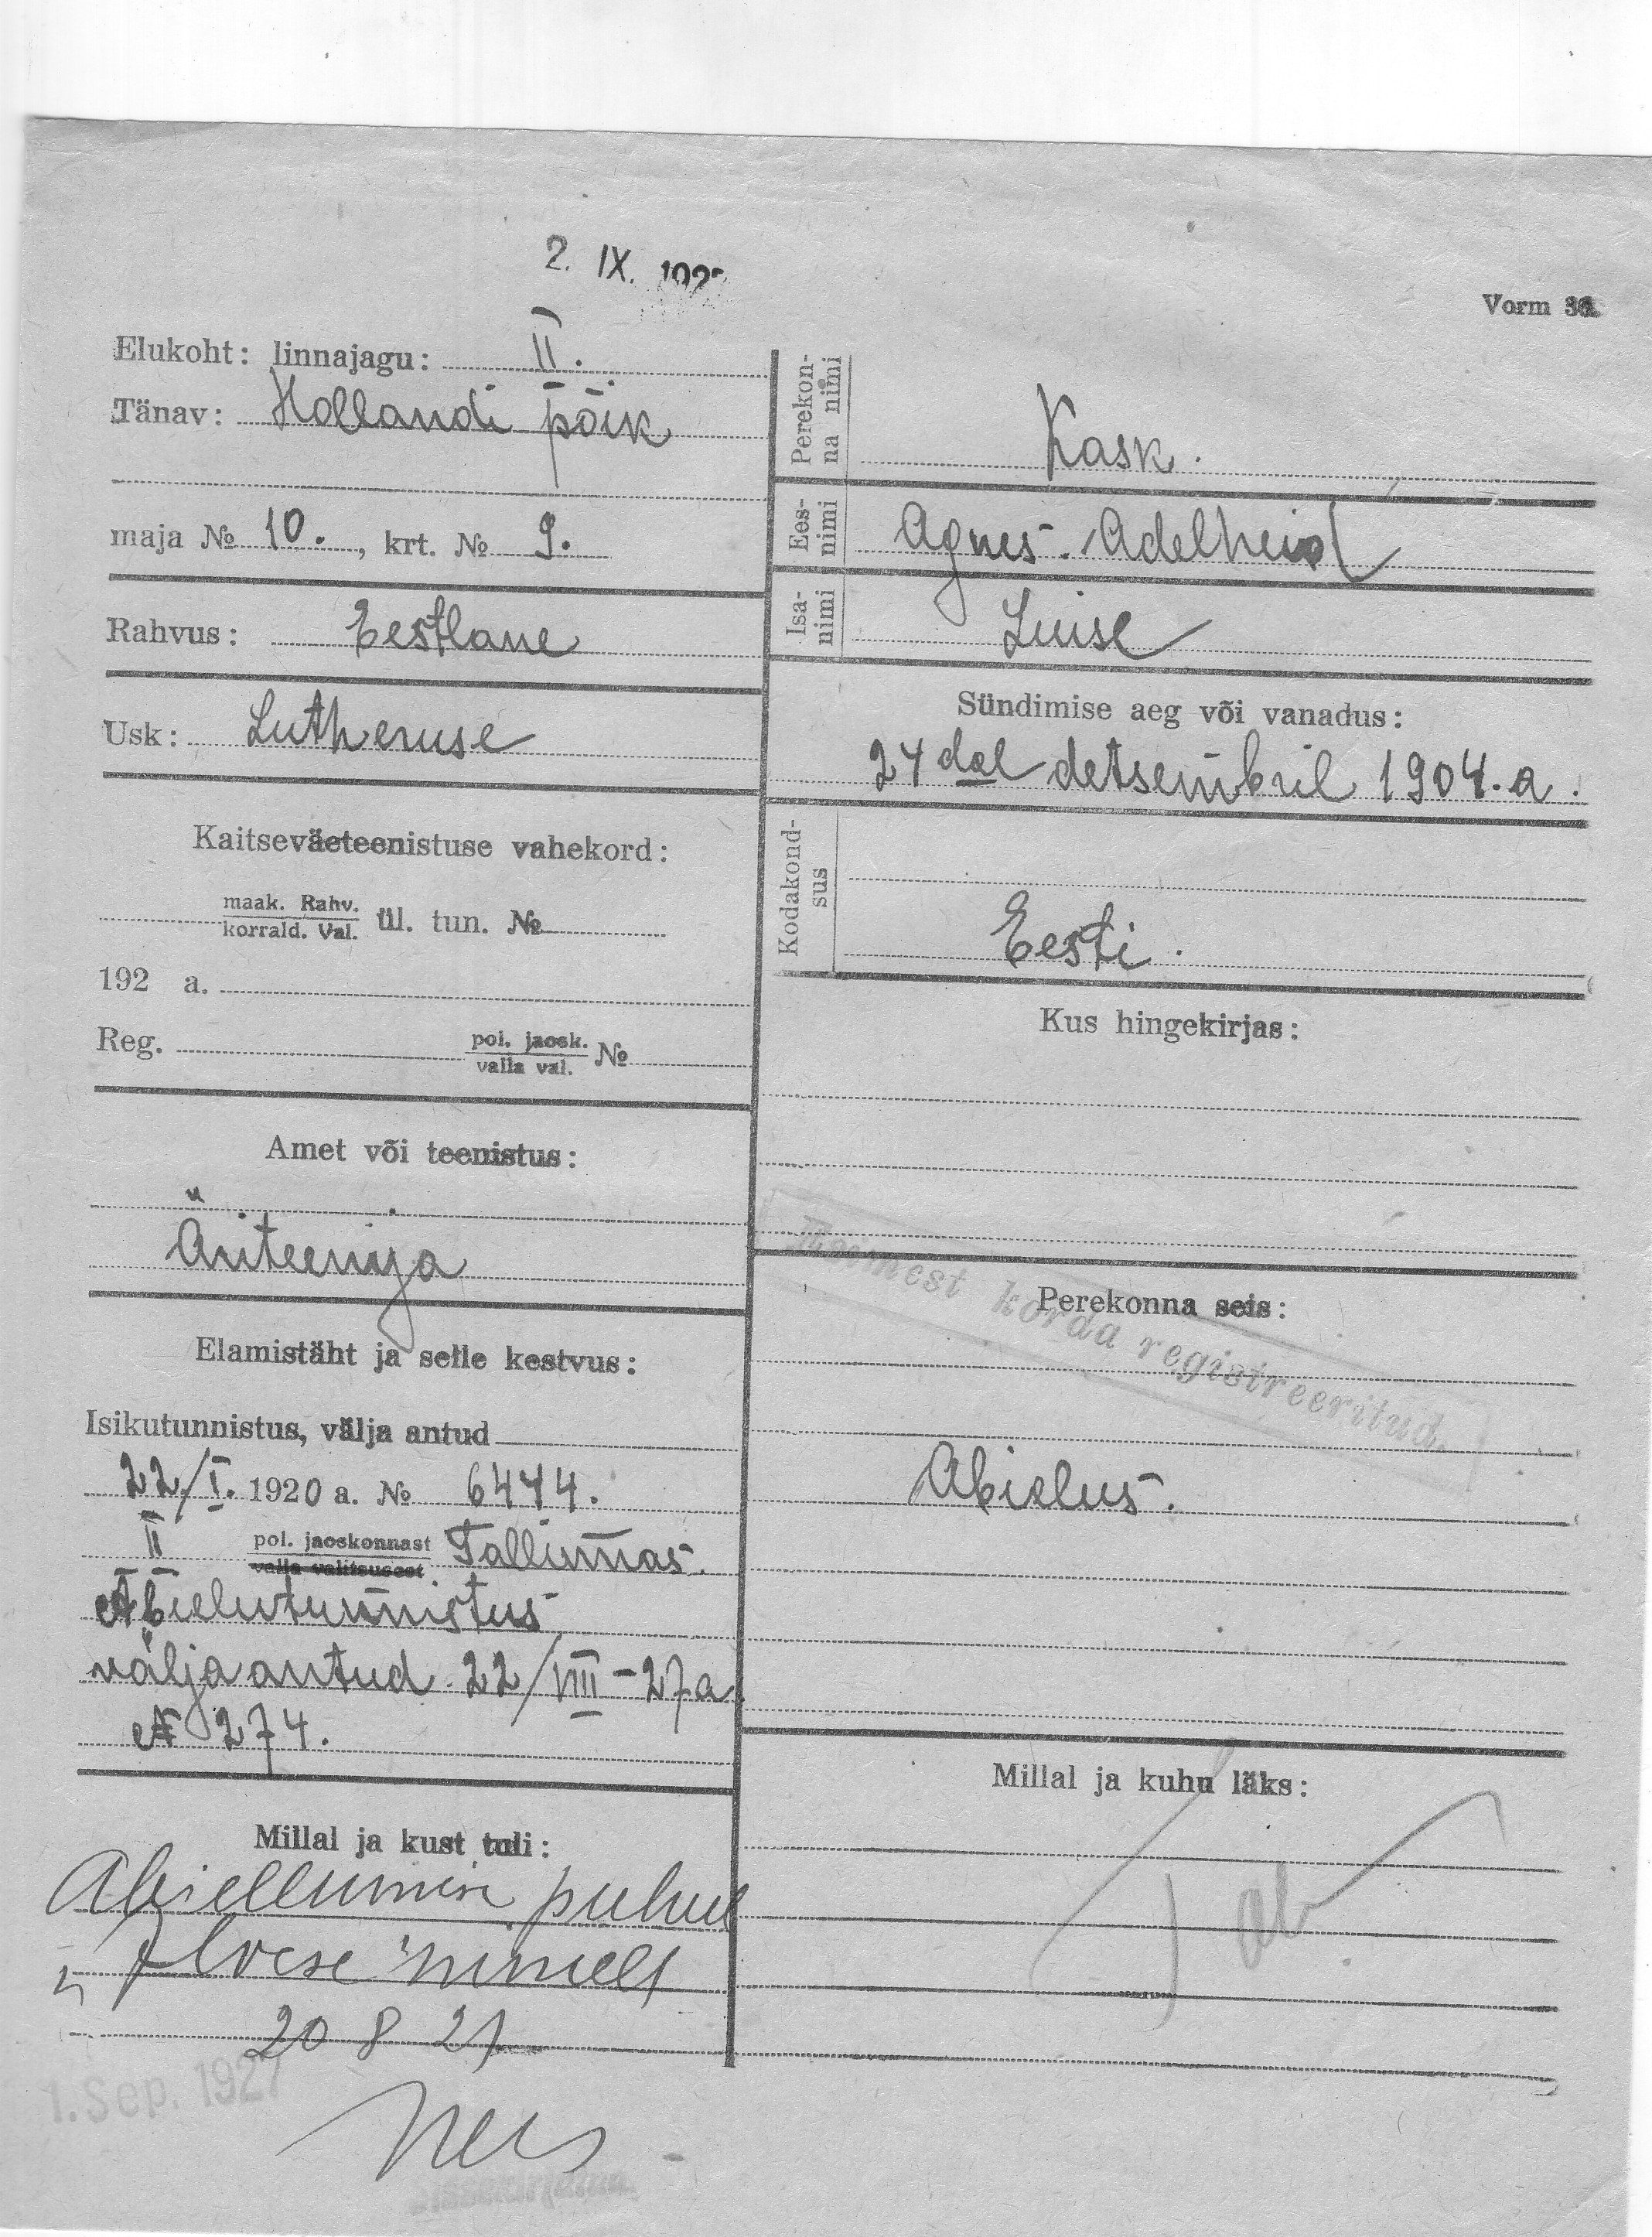 2. IX. 192
Vorm
Elukoht: linnajagu: II.
Tänav: Hollandi põik
maja № 10., krt. № 9.
Rahvus: Eestlane
Usk: Lutheruse
Kaitseväeteenistuse vahekord:
maak. Rahv.
korrald. Val. ül. tun. №
192 a.
Reg. pol. jaosk.
valla val. №
Amet või teenistus:
Äriteenija
Elamistäht ja selle kestvus:
Isikutunnistus, välja antud
22/I. 1920 a. № 6444.
II pol. jaoskonnast Tallinnas.
valla valitsusest
Abielutunnistus
välja antud. 22/VIII-27a.
№ 274.
Millal ja kust tuli:
Abiellumise puhul
nimelt
20 8 27
1. Sep. 1927
Perekon-
na nimi
Kask.
Ees-
nimi
Agnes-Adelheid
Isa-
nimi
Luise
Sündimise aeg või vanadus:
24 dal detsembril 1904.a.
Kodakond-
sus
Eesti.
Kus hingekirjas:
korda registreeritud.
Perekonna seis:
Abielus.
Millal ja kuhu läks: